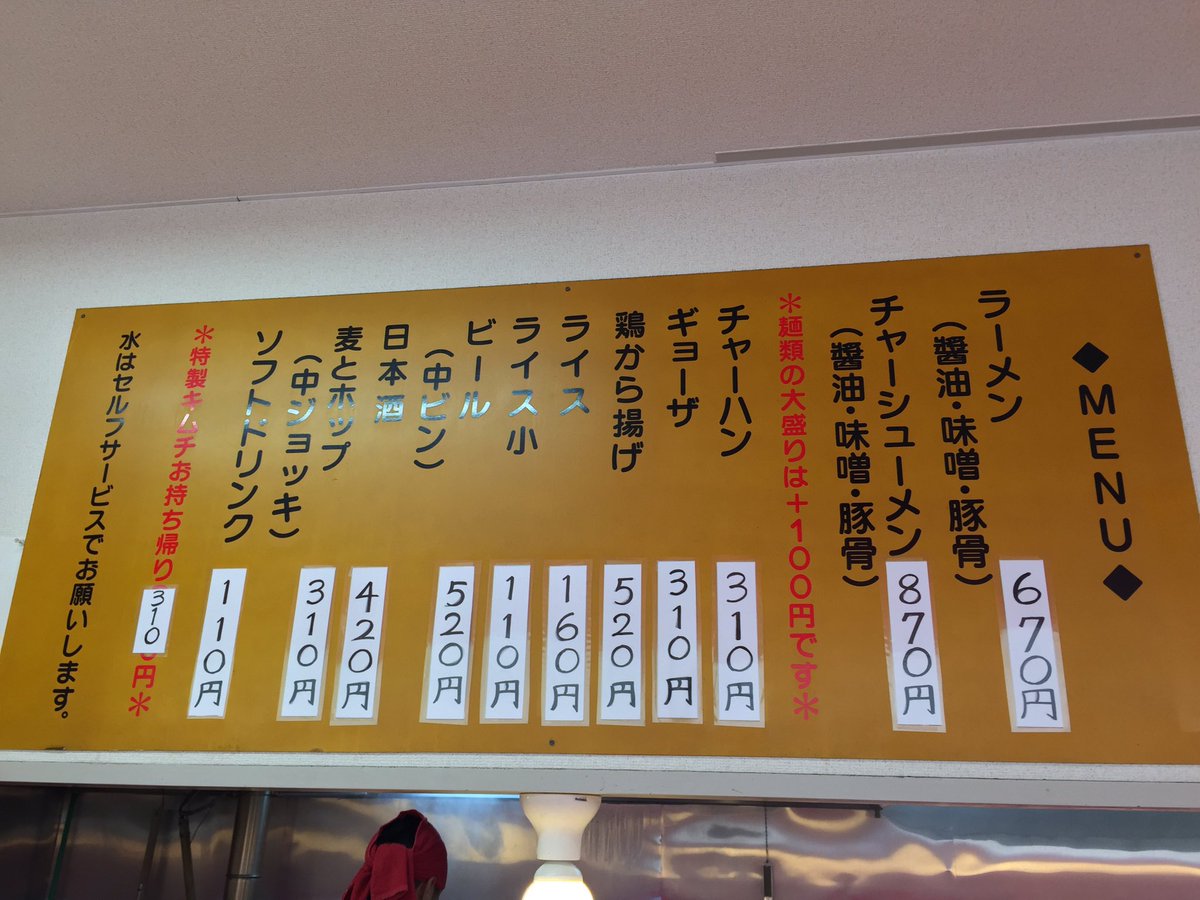 ◆MENU◆
ラーメン
(醬油・味噌・豚骨)
670円
チャーシューメン
(醬油・味噌・豚骨)
870円
*麺類の大盛りは+100円です*
チャーハン
310円
ギョーザ
310円
鶏から揚げ
520円
ライス
160円
ライス小
110円
ビール
(中ビン)
520円
日本酒
420円
麦とホップ
(中ジョッキ)
310円
ソフトドリンク
110円
*特製キムチお持ち帰り310円*
水はセルフサービスでお願いします。